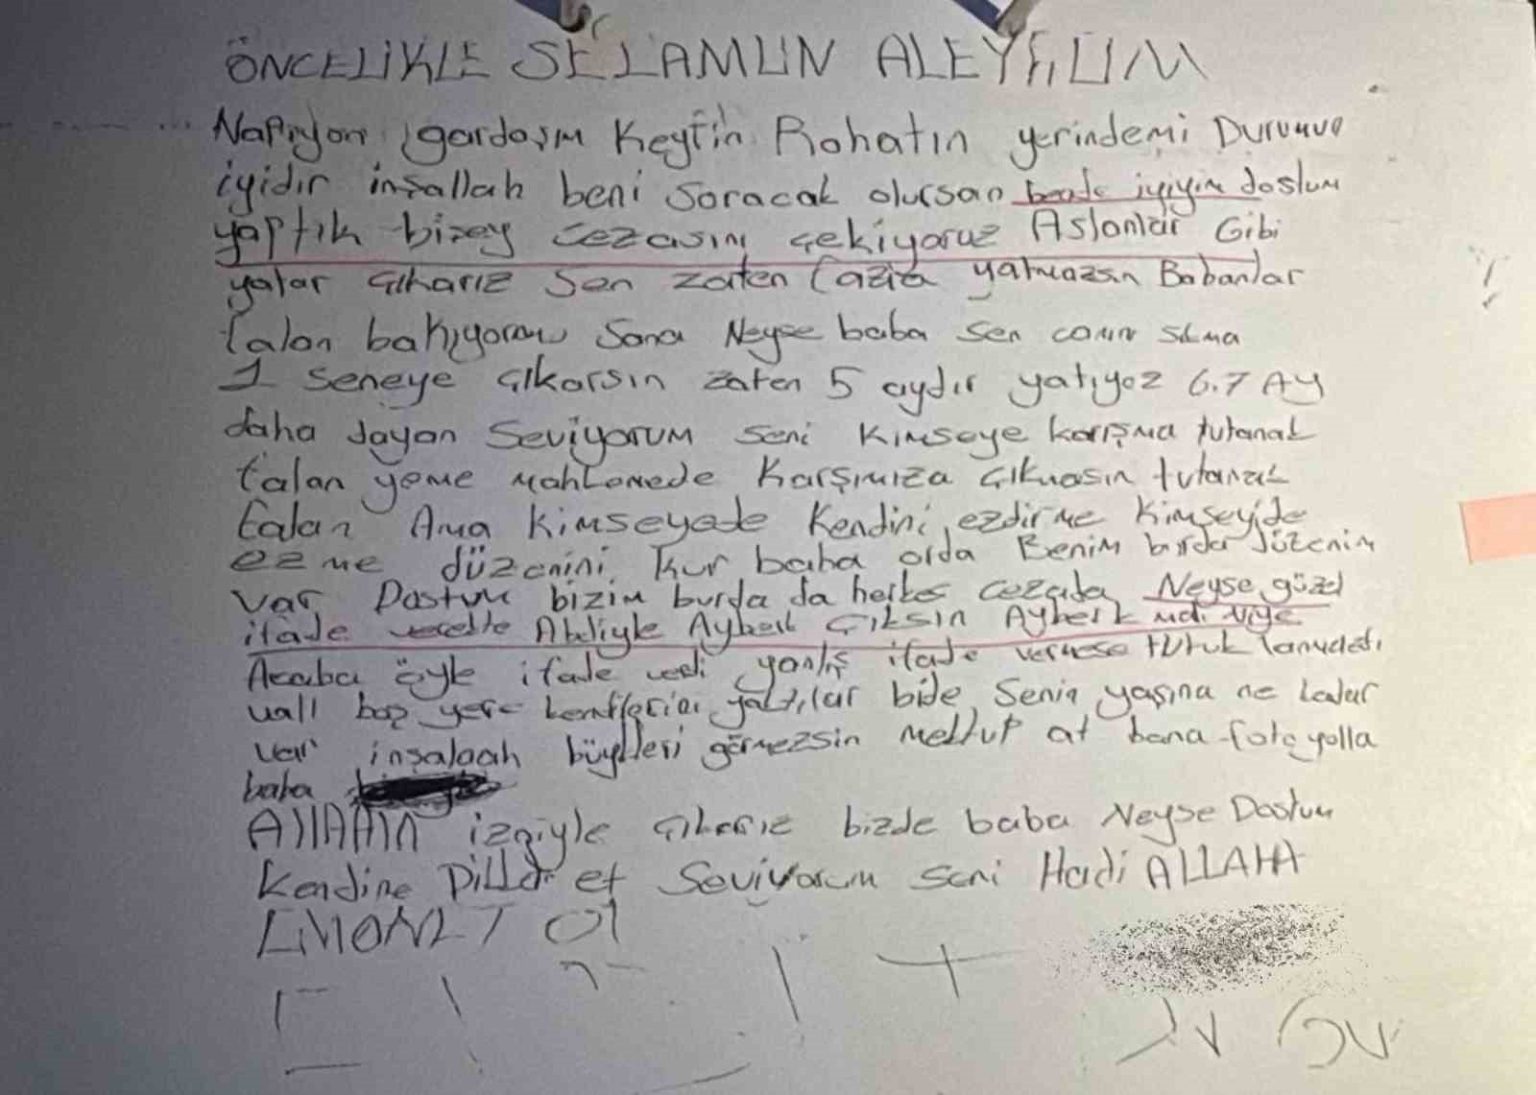 ÖNCELİKLE SELAMUN ALEYKUM
Napıyon gardaşım Keyfin Rohatın yerindemi Durumun
iyidir inşallah beni soracak olursan bende iyiyim dostum
yaptık bizey cezasını çekiyoruz Aslanlar Gibi
yatar çıkarız Sen zaten fazla yatmazsın Babanlar
falan bakıyorm Sana Neyse baba Sen canın sıkma
1 seneye çıkarsın zaten 5 aydır yatıyoz 6.7 AY
daha dayan Seviyorum seni Kimseye karışma tutanak
falan yeme mahkemede Karşımıza çıkmasın tutanak
falan Ama kimseyede Kendini ezdirme kimseyide
ezme düzenini kur baba orda Benim burda düzenim
var Dostum bizim burda da herkes cezada Neyse güzel
ifade verdikte Abdiyle Ayberk Çıksın Ayberk niye
Acaba öyle ifade verdi yanlış ifade vermese tutuklanmadı
vall boş yere kendilerini yaktılar bide Senin yaşına ne kadar
var inşalaah büyükleri görmezsin mektup at bana foto yolla
baba
Allahın izniyle çıkarız bizde baba Neyse Dostum
Kendine Dikkat et Seviyorum seni Hadi ALLAHA
EMANET Ol